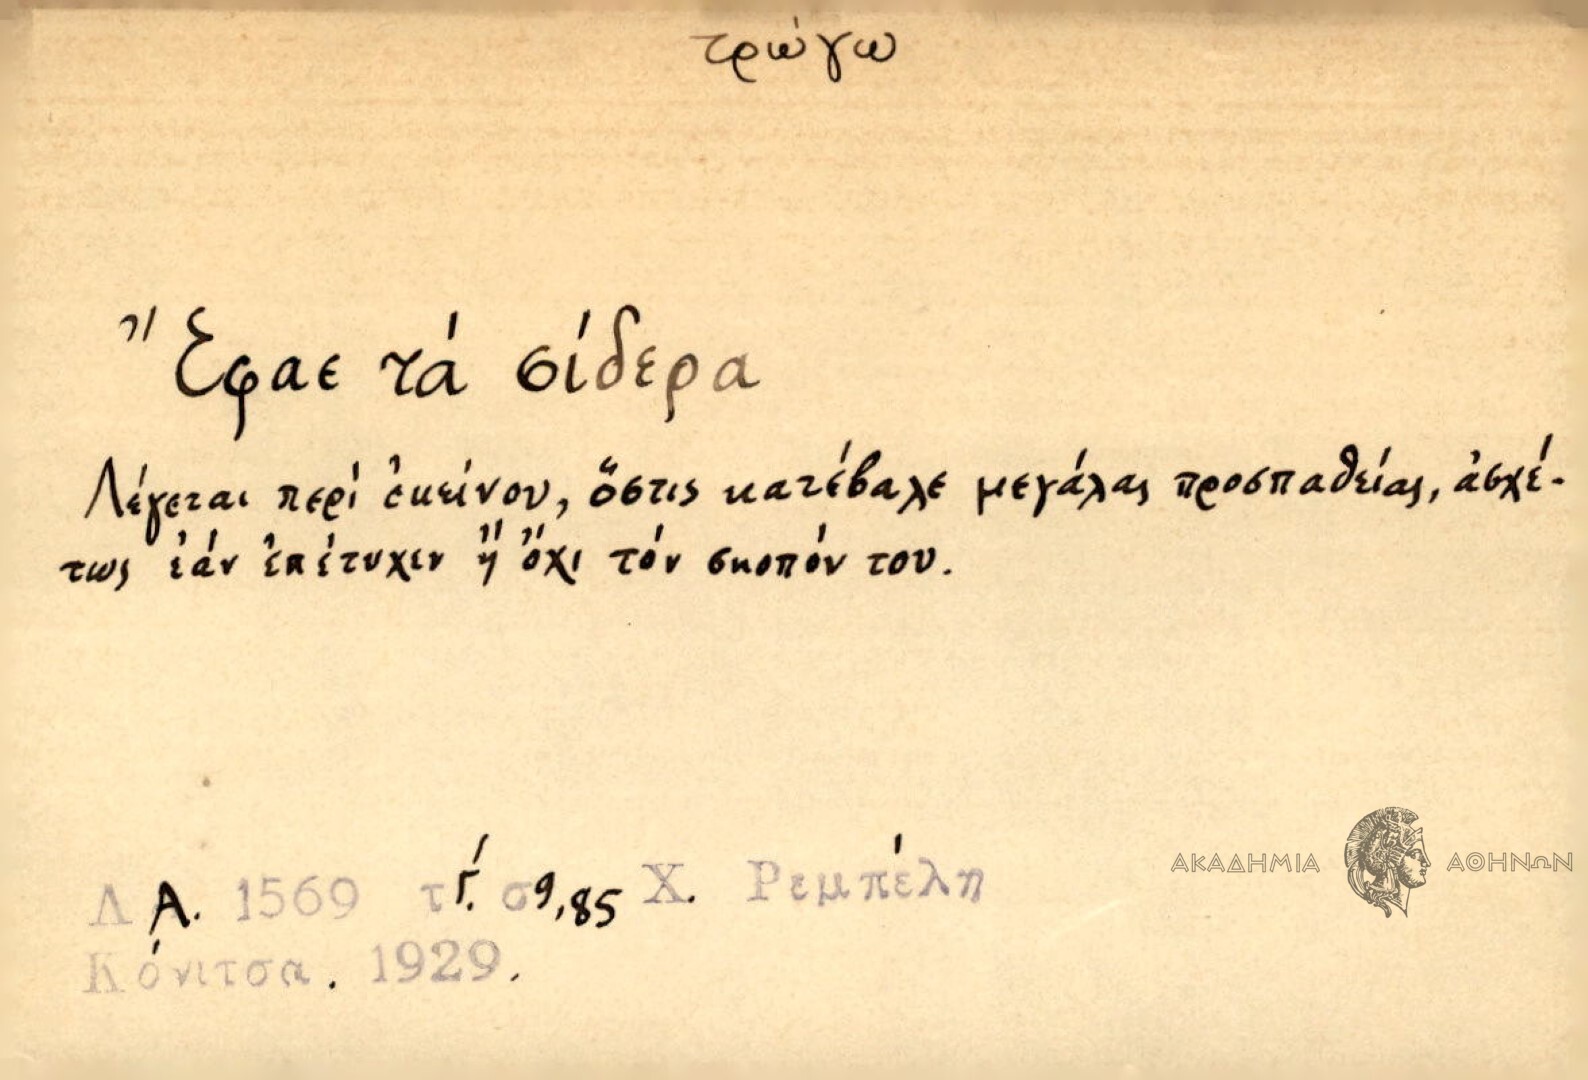 τρώγω
Ἔφαε τά σίδερα
Λέγεται περί ἐκείνου, ὅστις κατέβαλε μεγάλας προσπαθείας, ἀσχέ-
τως ἐάν ἐπέτυχεν ἤ ὄχι τόν σκοπόν του.
ΑΚΑΔΗΜΙΑ ΑΘΗΝΩΝ
Λ Α. 1569 τ Γ΄. σ 9,85 Χ. Ρεμπέλη
Κόνιτσα. 1929.